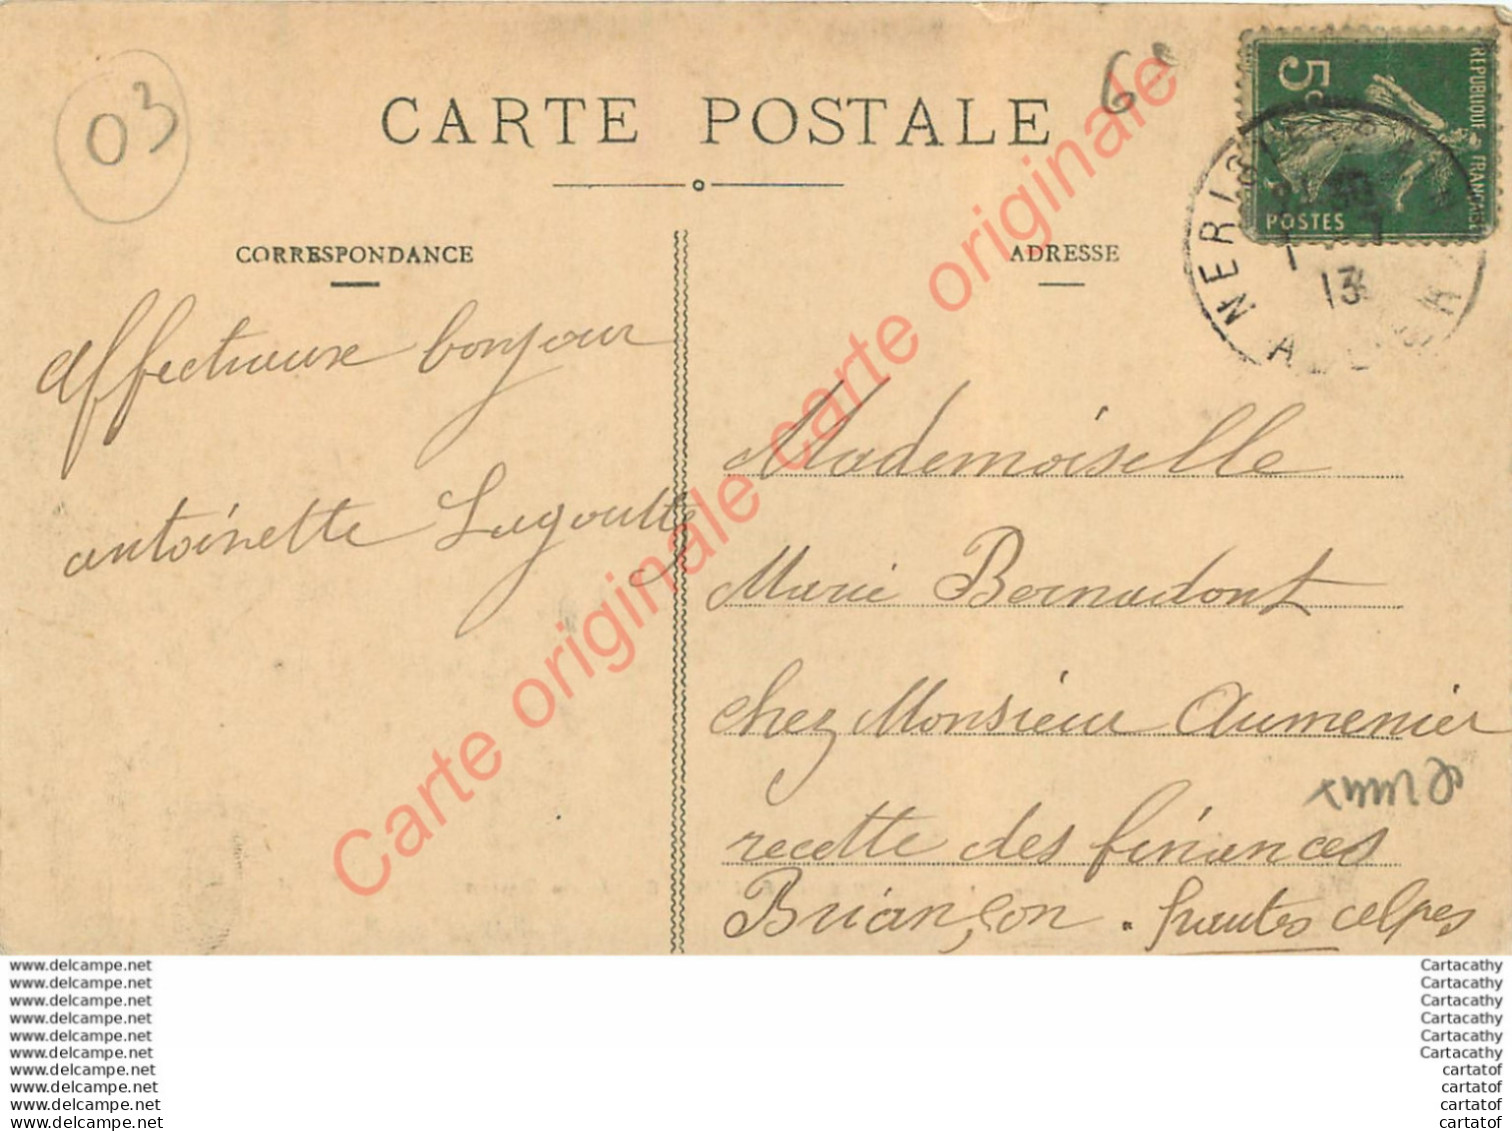 03
6€
CARTE POSTALE
RÉPUBLIQUE FRANÇAISE
5c
POSTES
NERIS LES BAINS
21 30
1 - 7
13
ALLIER
CORRESPONDANCE
ADRESSE
affectueux bonjour
antoinette Lagoutte
Mademoiselle
Marie Bernadont
chez Monsieur Aumenier
recette des finances
Briançon . hautes alpes
Carte originale carte originale
Carte originale
www.delcampe.net
www.delcampe.net
www.delcampe.net
www.delcampe.net
www.delcampe.net
www.delcampe.net
www.delcampe.net
www.delcampe.net
www.delcampe.net
www.delcampe.net
Cartacathy
Cartacathy
Cartacathy
Cartacathy
Cartacathy
Cartacathy
cartatof
cartatof
cartatof
cartatof